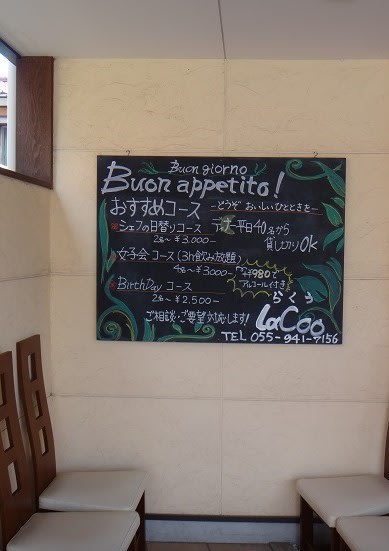 Buon giorno
Buon appetito!
おすすめコース
-どうぞ おいしいひとときを-
※シェフの日替りコース
2名〜 ¥3,000-
ディナー平日40名から
貸し切りOK
女子会コース(3h飲み放題)
4名〜 ¥3000-
980で
アルコール付き
※BirthDay コース
2名〜 ¥2,500-
らくぅ
LaCoo
ご相談・ご要望対応します!
TEL 055-941-7156